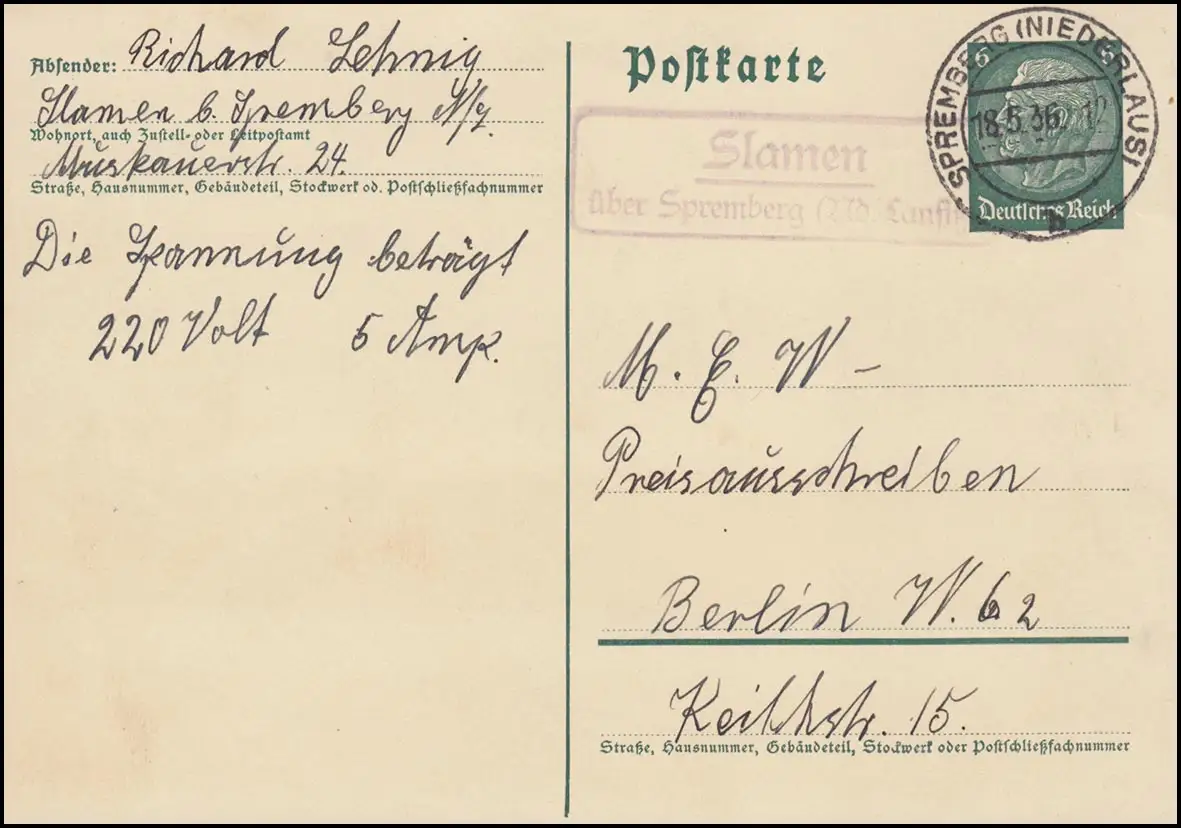 Absender: Richard Lehnig
Slamen b. Spremberg N/L.
Wohnort, auch Zustell- oder Leitpostamt
Muskauerstr. 24.
Straße, Hausnummer, Gebäudeteil, Stockwerk od. Postschließfachnummer
Die Spannung beträgt
220 Volt 5 Amp.
Postkarte
Slamen
über Spremberg (Nd. Lausitz)
SPREMBERG (NIEDERLAUS)
18.5.36. 12
b
6 6
Deutsches Reich
M. E. W –
Preisausschreiben
Berlin W. 62
Keithstr. 15.
Straße, Hausnummer, Gebäudeteil, Stockwerk oder Postschließfachnummer